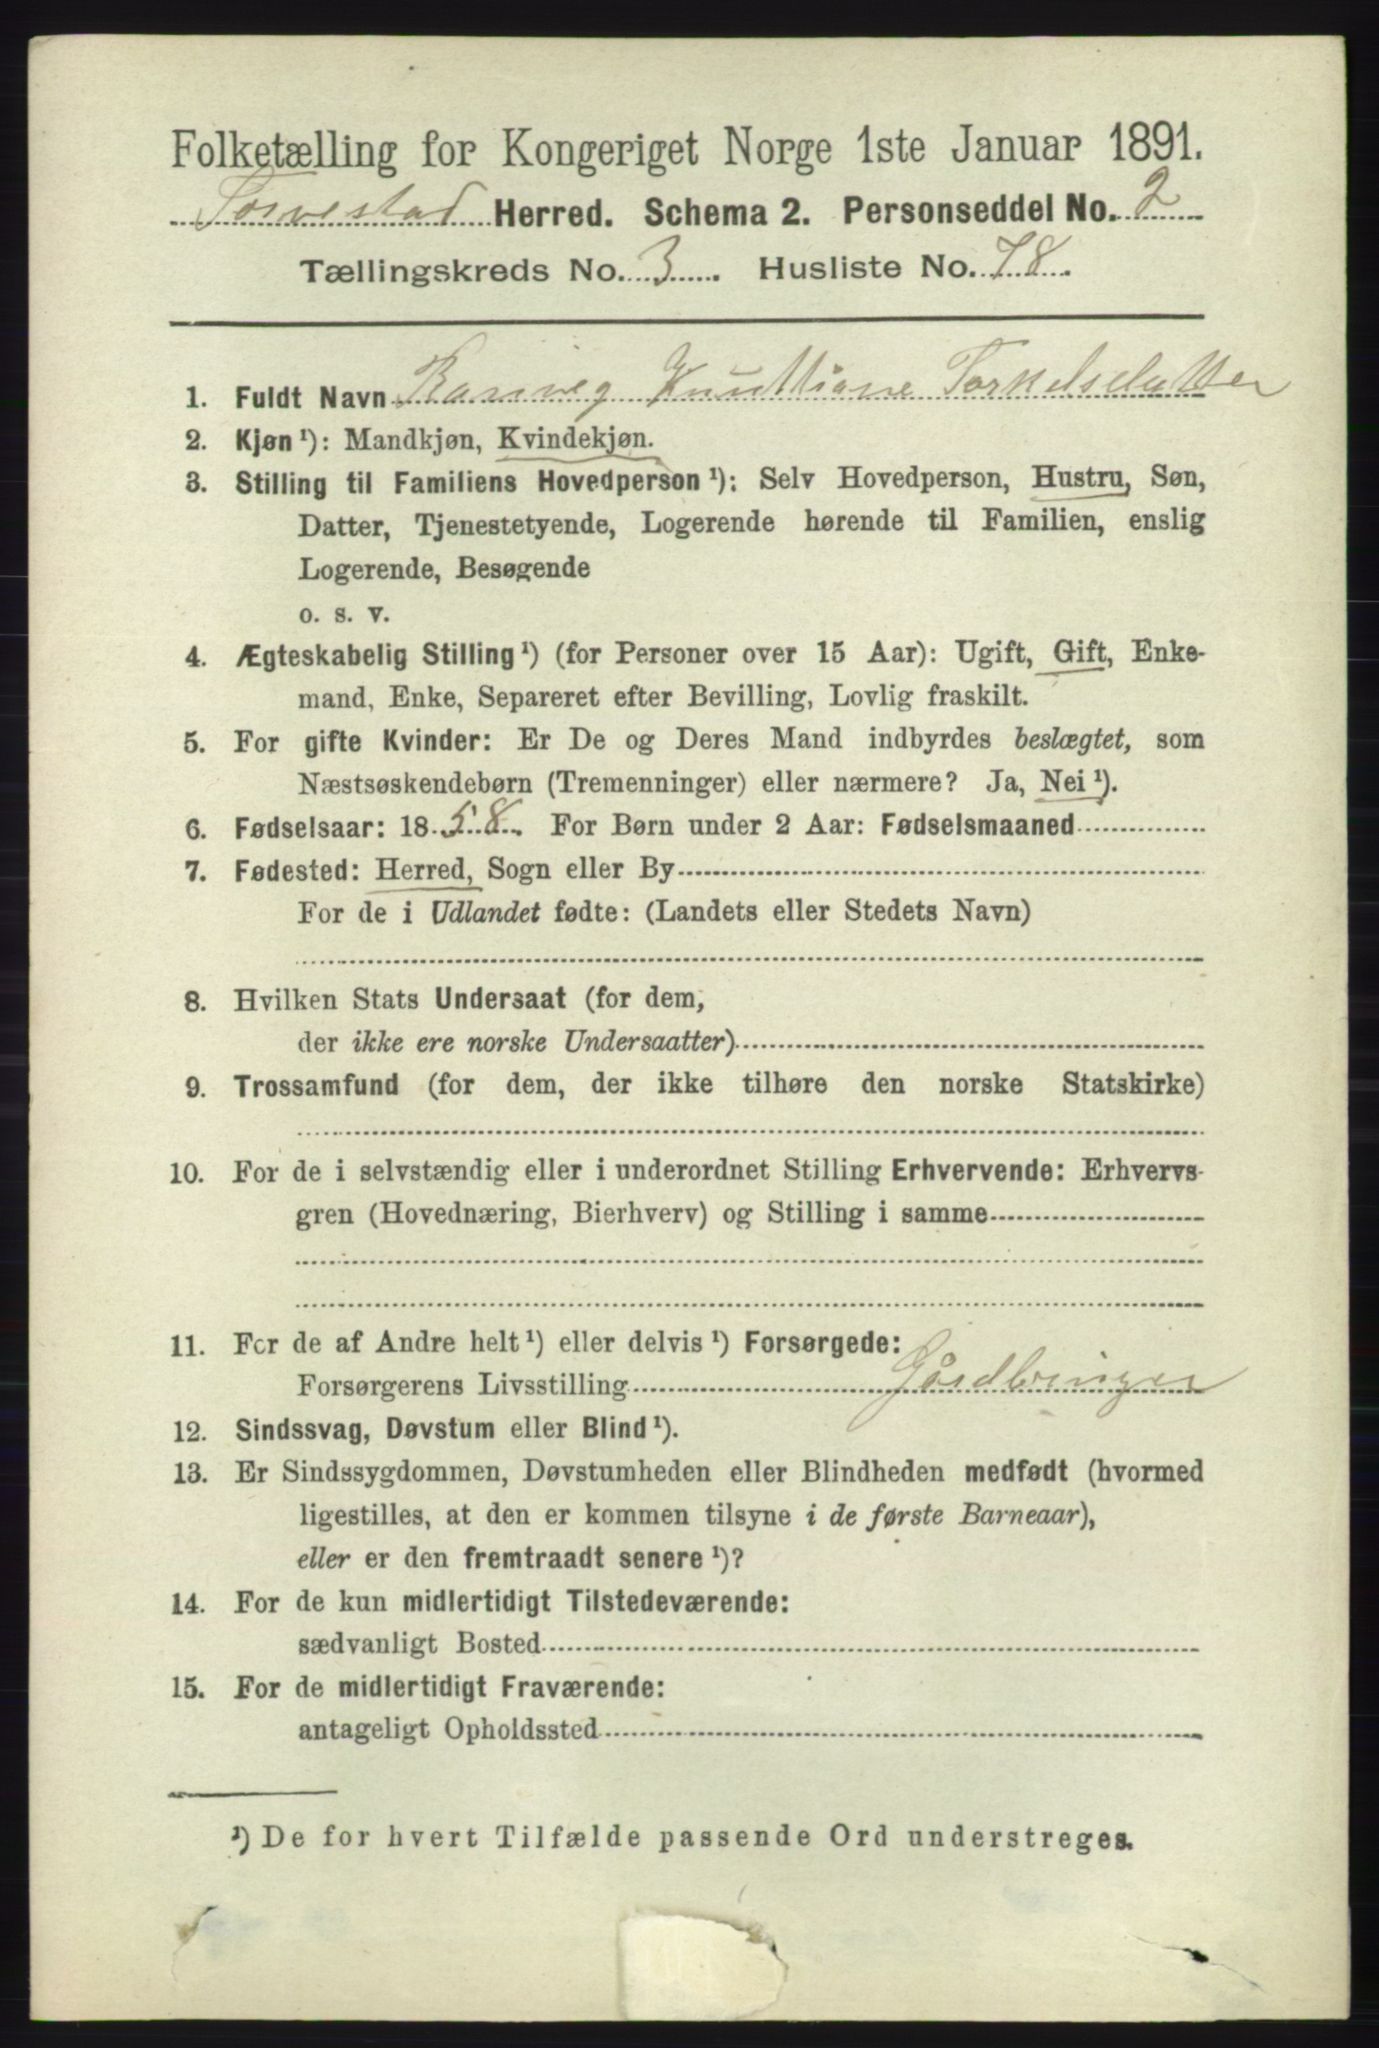 Folketælling for Kongeriget Norge 1ste Januar 1891.
Torvestad Herred. Schema 2. Personseddel No. 2
Tællingskreds No. 3. Husliste No. 78.
1. Fuldt Navn Ranveg Knuttiane Torkelsdatter
2. Kjøn ¹): Mandkjøn, Kvindekjøn.
3. Stilling til Familiens Hovedperson ¹): Selv Hovedperson, Hustru, Søn,
Datter, Tjenestetyende, Logerende hørende til Familien, enslig
Logerende, Besøgende
o. s. v.
4. Ægteskabelig Stilling ¹) (for Personer over 15 Aar): Ugift, Gift, Enke-
mand, Enke, Separeret efter Bevilling, Lovlig fraskilt.
5. For gifte Kvinder: Er De og Deres Mand indbyrdes beslægtet, som
Næstsøskendebørn (Tremenninger) eller nærmere? Ja, Nei ¹).
6. Fødselsaar: 1858. For Børn under 2 Aar: Fødselsmaaned
7. Fødested: Herred, Sogn eller By
For de i Udlandet fødte: (Landets eller Stedets Navn)
8. Hvilken Stats Undersaat (for dem,
der ikke ere norske Undersaatter)
9. Trossamfund (for dem, der ikke tilhøre den norske Statskirke)
10. For de i selvstændig eller i underordnet Stilling Erhvervende: Erhvervs-
gren (Hovednæring, Bierhverv) og Stilling i samme
11. For de af Andre helt ¹) eller delvis ¹) Forsørgede:
Forsørgerens Livsstilling Gårdbruger
12. Sindssvag, Døvstum eller Blind ¹).
13. Er Sindssygdommen, Døvstumheden eller Blindheden medfødt (hvormed
ligestilles, at den er kommen tilsyne i de første Barneaar),
eller er den fremtraadt senere ¹)?
14. For de kun midlertidigt Tilstedeværende:
sædvanligt Bosted
15. For de midlertidigt Fraværende:
antageligt Opholdssted
¹) De for hvert Tilfælde passende Ord understreges.